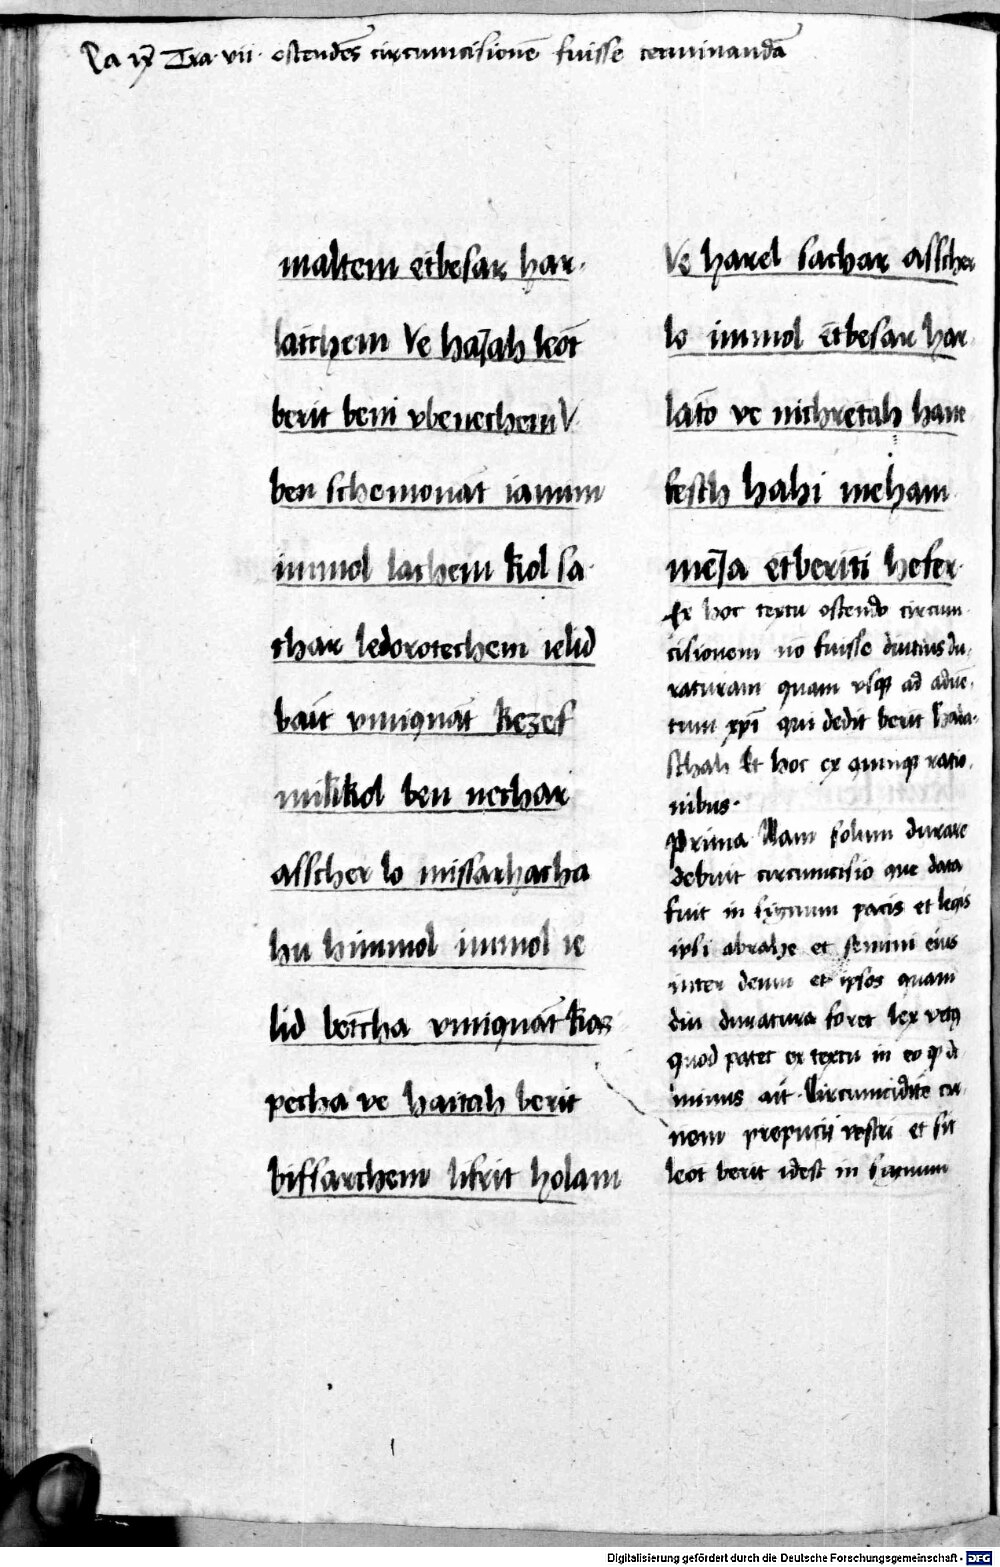 Ca ix Tra vii ostendēs circumcisionē fuisse terminandā
maltem etbesar har
latchem Ve haiah leot
berit beni vbenechem V
ben schemonat iamim
immol lachem kol sa
char ledorotechem ielid
bait vmiqnat kezef
mikkol ben nechar
asscher lo missarhacha
hu himmol immol ie
lid betcha vmiqnat kas
pecha ve haitah berit
bissarchem librit holam
Ve harel sachar asscher
lo immol etbesar har
lato ve nichretah hane
fesch hahi meham
meia etberiti hefer
Ex hoc textu ostendo circum
cisionem nō fuisse diutius du
raturam quam vsq ad aduē
tum xpi qui dedit berit hada
schah Et hoc ex quinq ratio
nibus
Prima Nam solum durare
debuit circumcisio que data
fuit in signum pacis et legis
ipsi abrahe et semini eius
inter deum et ipsos quam
diu duratura foret lex vetus
quod patet ex textu in eo q d
minus ait Circumcidite car
nem prepucii vestri et sit
leot berit idest in signum
Digitalisierung gefördert durch die Deutsche Forschungsgemeinschaft - DFG